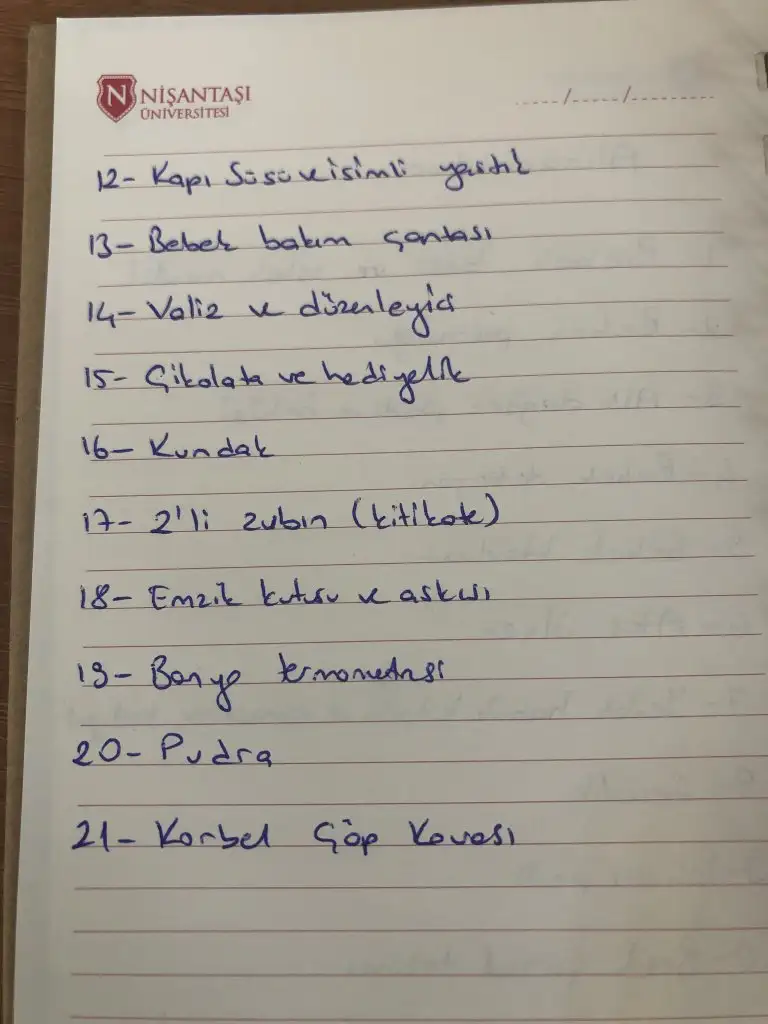 N NİŞANTAŞI
ÜNİVERSİTESİ
...../...../.........
12- Kapı Süsü ve isimli yastık
13- Bebek bakım çantası
14- Valiz ve düzenleyici
15- Çikolata ve hediyelik
16- Kundak
17- 2'li zıbın (kitikate)
18- Emzik kutusu ve askısı
19- Banyo termometresi
20- Pudra
21- Korbel Çöp Kovası